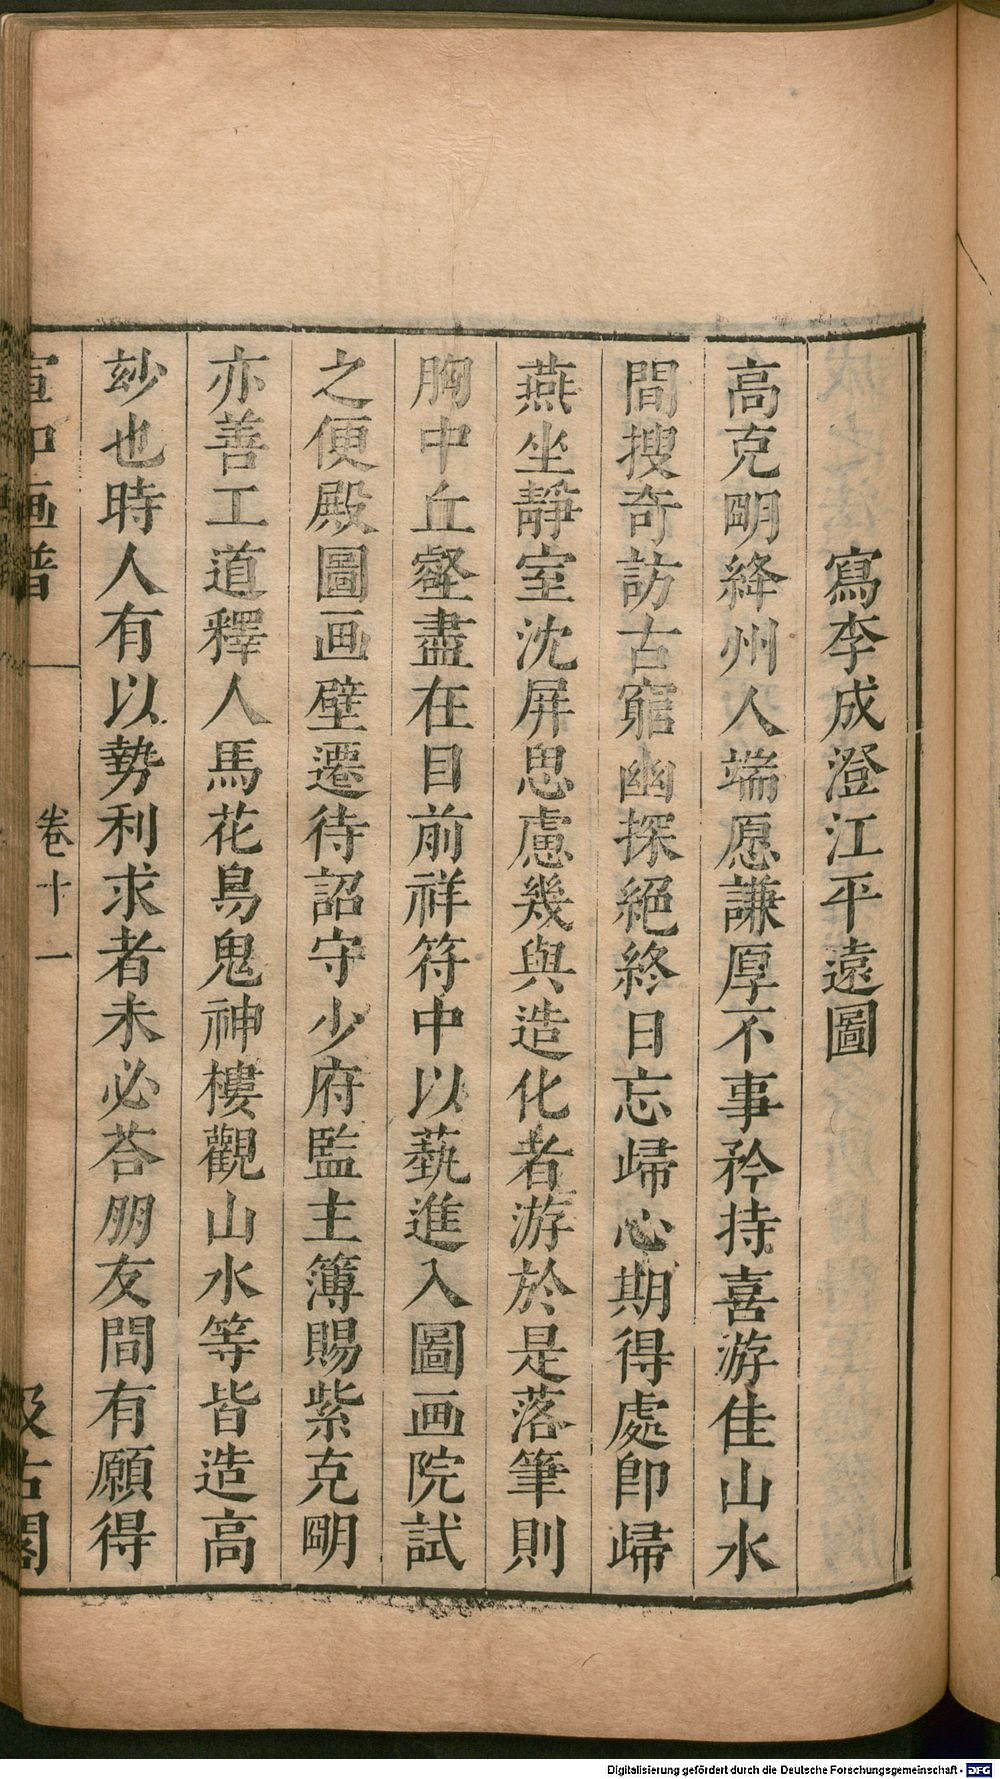 寫李成澄江平遠圖
高克明絳州人端愿謙厚不事矜持喜游佳山水
間搜奇訪古窮幽探絕終日忘歸心期得處卽歸
燕坐靜室沈屏思慮幾與造化者游於是落筆則
胸中丘壑盡在目前祥符中以藝進入圖画院試
之便殿圖画壁遷待詔守少府監主簿賜紫克明
亦善工道釋人馬花鳥鬼神樓觀山水等皆造高
玅也時人有以勢利求者未必荅朋友間有願得
宣和画譜 卷十一 汲古閣
Digitalisierung gefördert durch die Deutsche Forschungsgemeinschaft - DFG